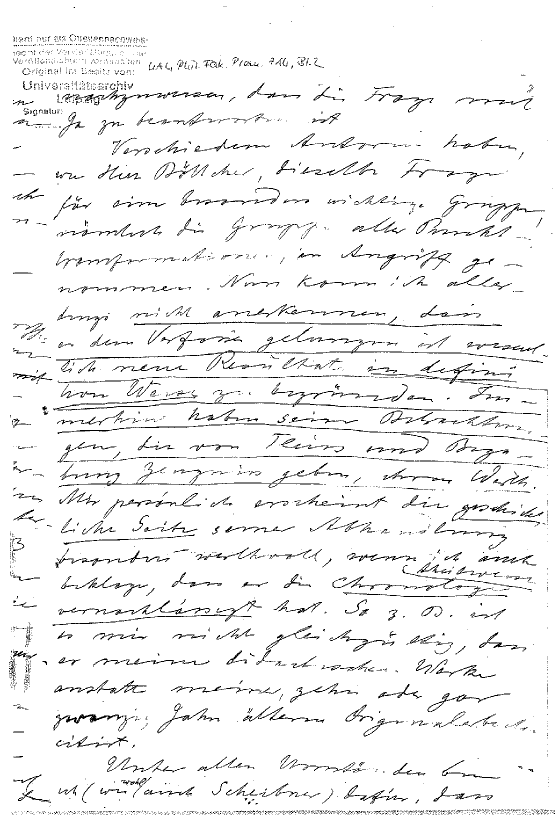 dient nur als Quellennachweis
recht der Veröffentlichung
Veröffentlichung vorbehalten
Original im Besitz von: UAL, Phil. Fak. Prom. 714, Bl. 2
Universitätsarchiv
Leipzig
Signatur:
nachzuweisen, dass die Frage mit
Ja zu beantworten ist
Verschiedene Autoren haben,
wie Herr Böttcher, dieselbe Frage
für eine besonders wichtige Gruppe,
nämlich die Gruppe aller Punkt-
transformationen, in Angriff ge-
nommen. Nun kann ich aller-
dings nicht anerkennen, dass
es dem Verfasser gelungen ist wesent-
lich neue Resultate in defini-
tiver Weise zu begründen. Im-
merhin haben seine Betrachtun-
gen, die von Fleiss und Bega-
bung Zeugniss geben, ihren Werth.
Mir persönlich erscheint die geschicht-
liche Seite seiner Abhandlung
besonders werthvoll, wenn ich auch
beklage, dass er die Chronologie
stellenweise
vernachlässigt hat. So z. B. ist
es mir nicht gleichgültig, dass
er meine didactischen Werke
anstatt meiner, zehn oder gar
zwanzig Jahre älteren Originalarbeiten
citirt.
Unter allen Umständen bin
ich (wie wohl auch Scheibner) dafür, dass